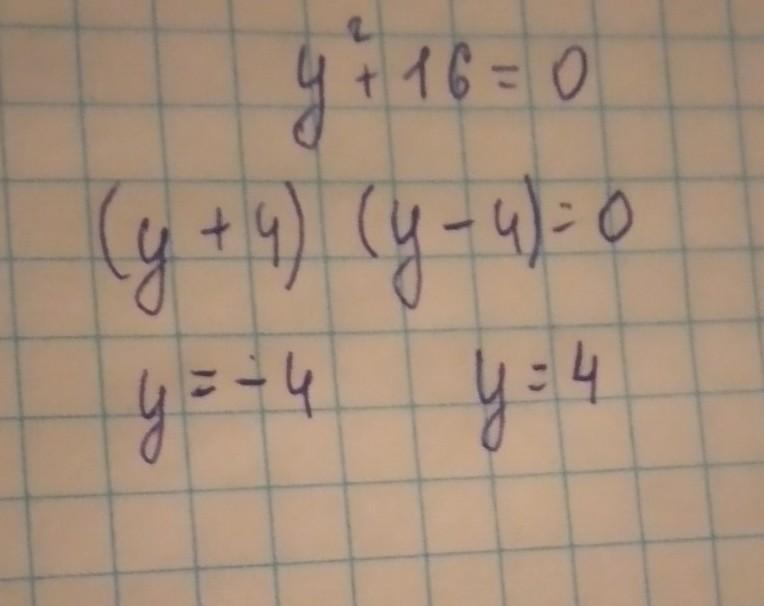 y² + 16 = 0
(y + 4) (y - 4) = 0
y = - 4 y = 4